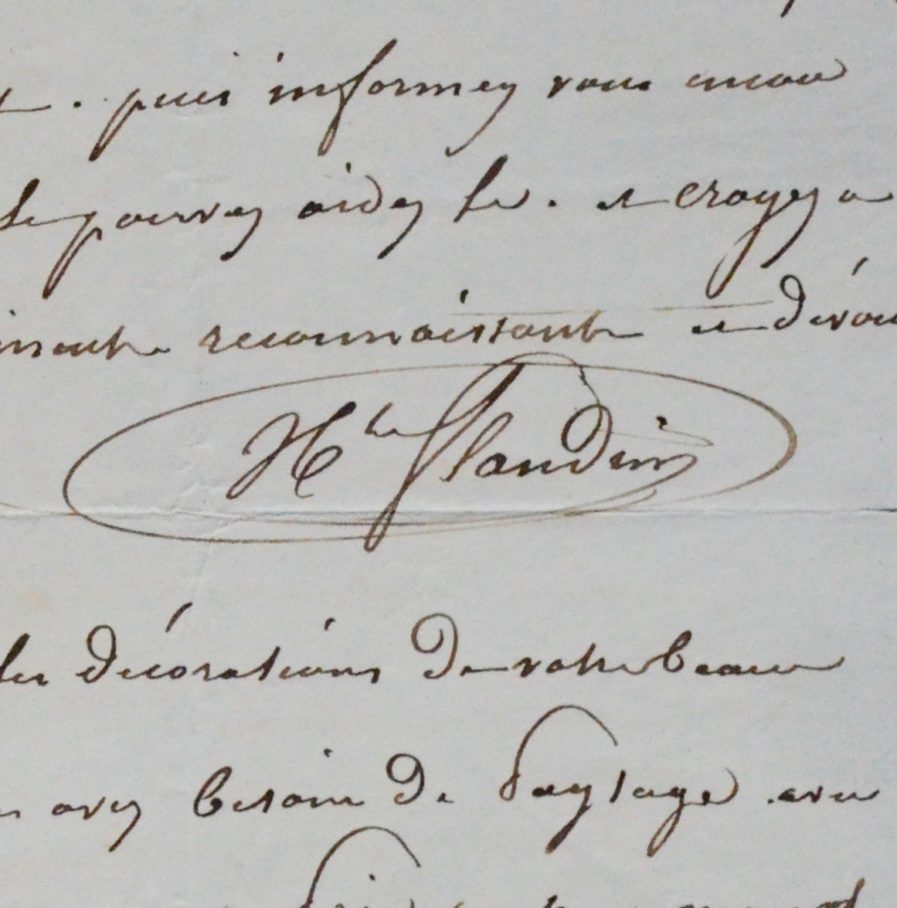 . puis informez vous encore
le pouvez aidez le . et croyez a
reconnaissante et dévou
H te Flandrin
les décorations de votre beau
avez besoin de Paysage avec